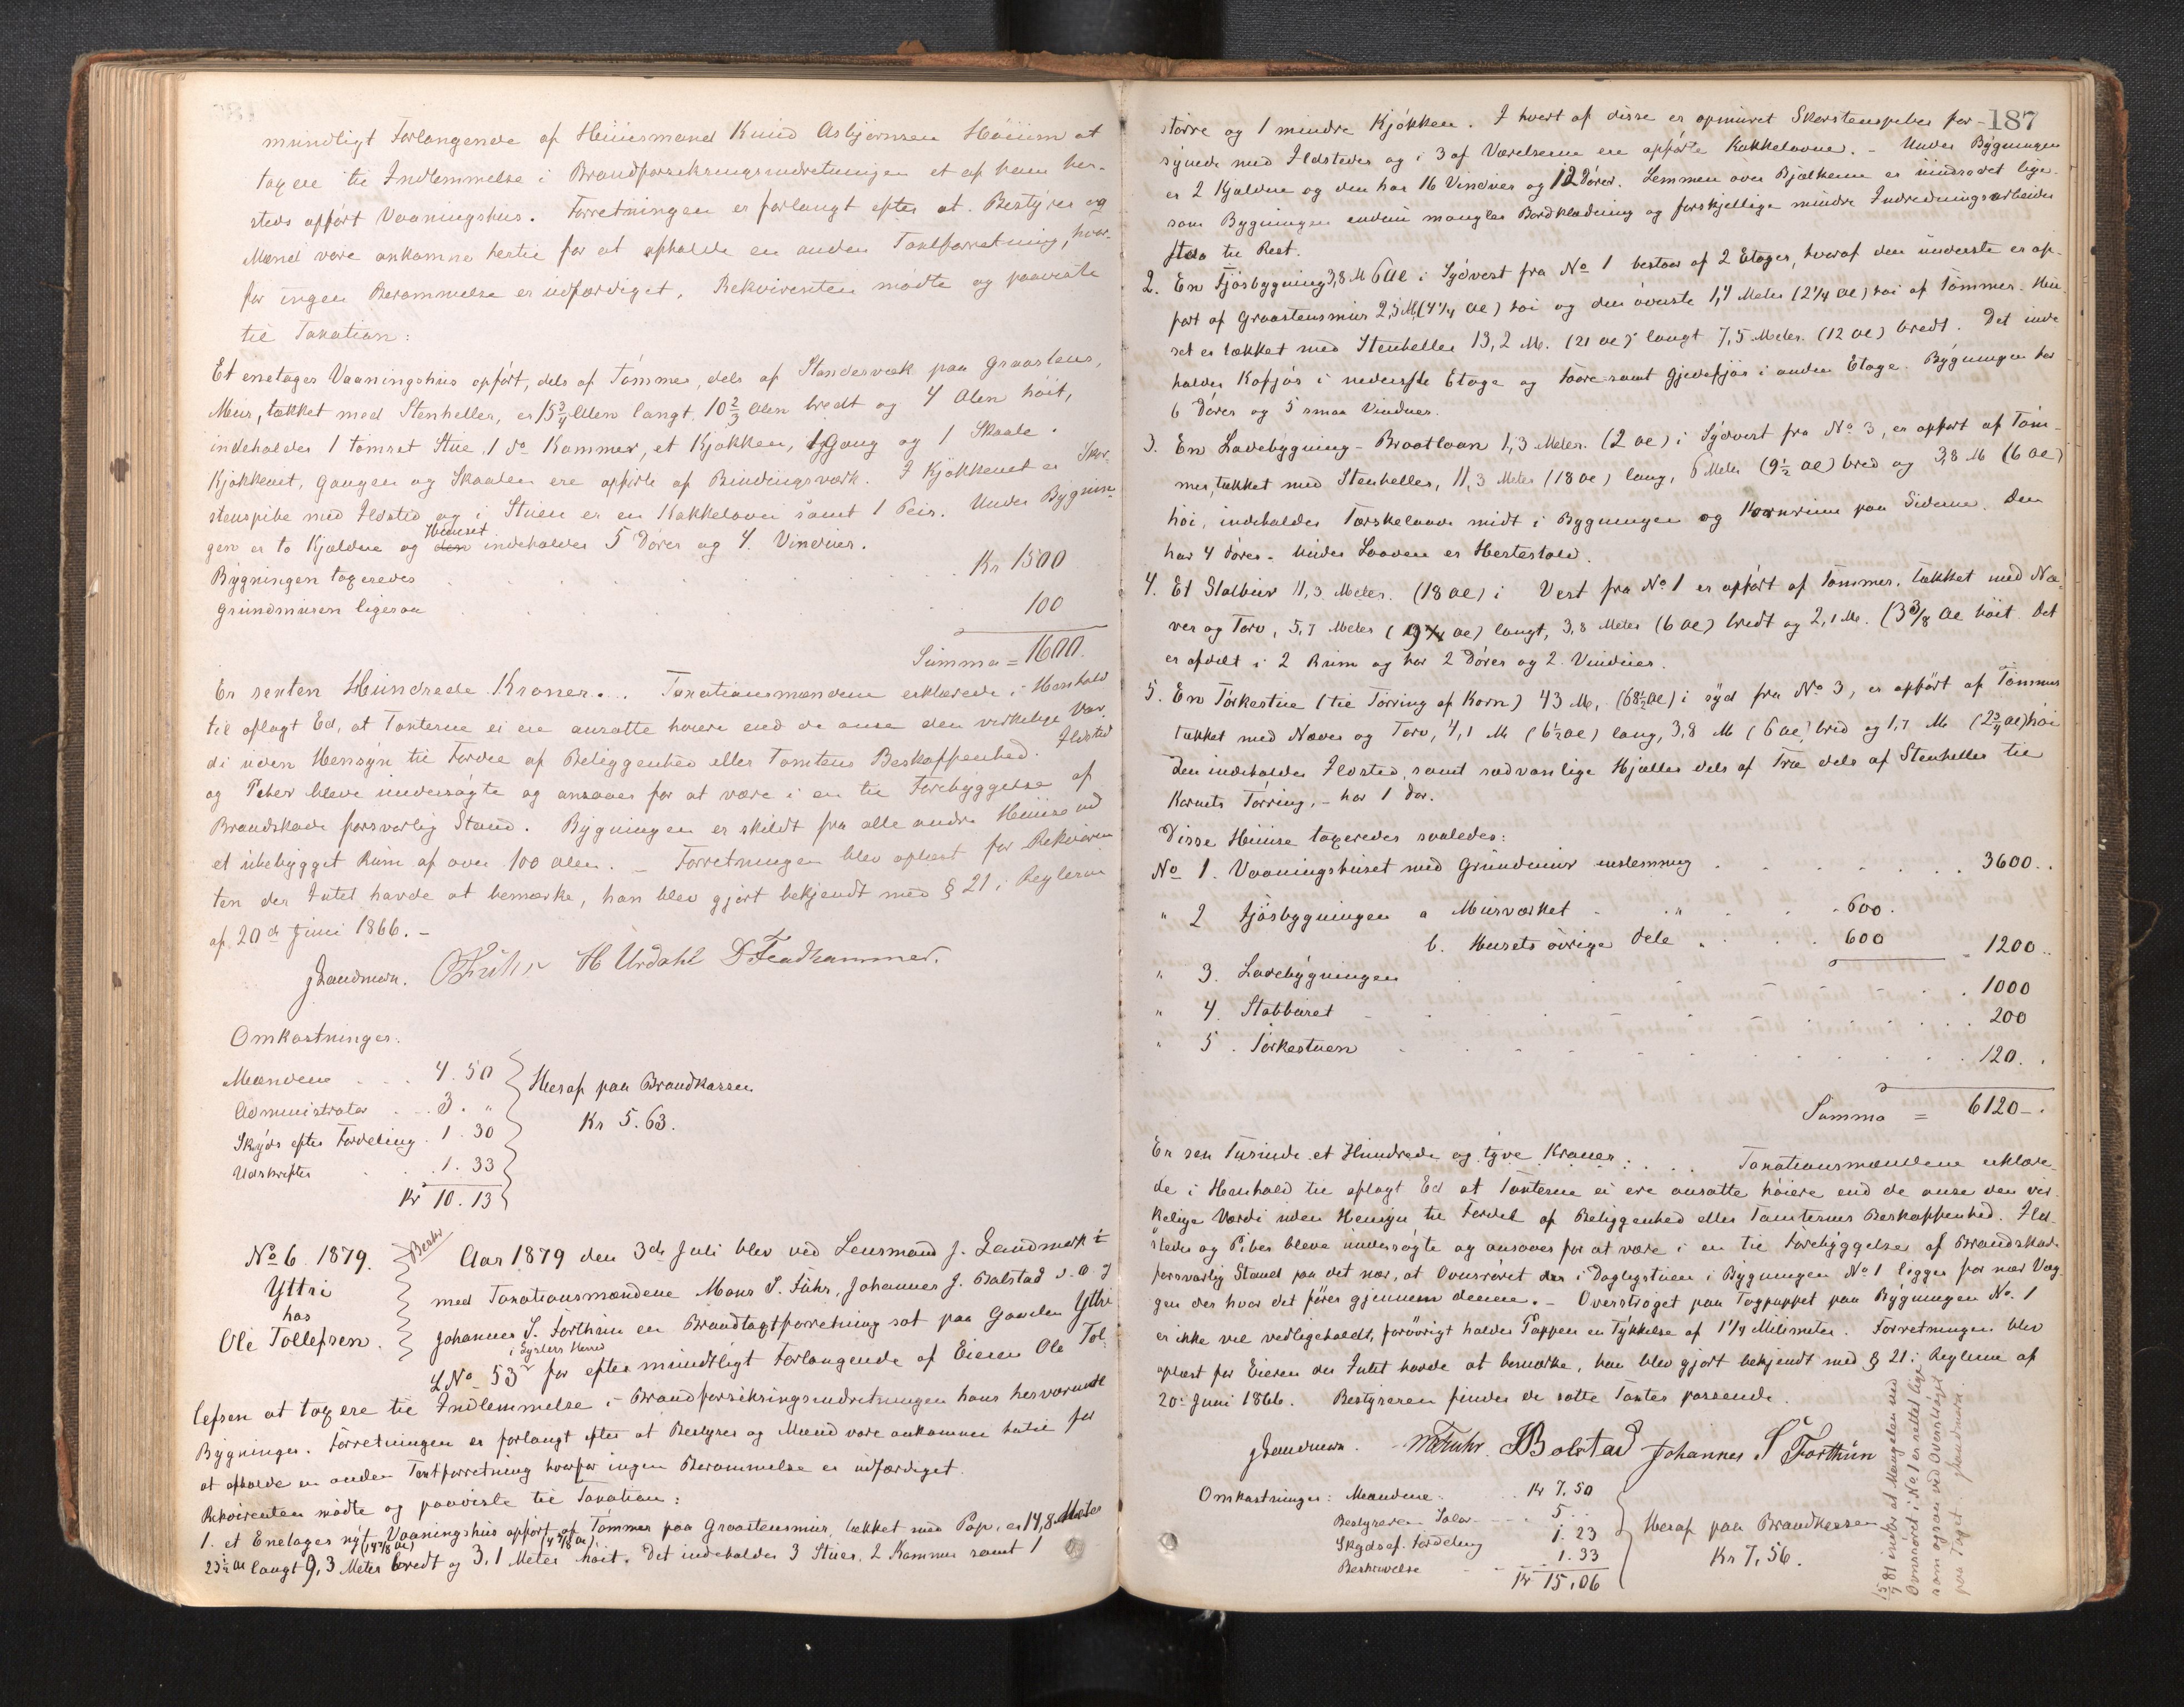 mundtligt Forlangende af Huusmand Knud Asbjørnsen Høium at
taxere til Indlemmelse i Brandforsikringsindretningen et af ham her-
steds opført Vaaningshus. Forretningen er forlangt efter at Bestyrer og
Mænd vare ankomne hertil for at afholde en anden Taxtforretning, hvor-
for ingen Berammelse er udfærdiget. Rekvirenten mødte og paaviste
til Taxation:
Et enetages Vaaningshus opført, dels af Tømmer, dels af Standerværk paa Graastens,
Muur, tækket med Stenheller, er 15 3/4 Alen langt. 10 2/3 Alen bredt og 4 Alen høit,
indeholder 1 tømret Stue, 1 do Kammer, et Kjøkken, 1 Gang og 1 Skaale.
Kjøkkenet, Gangen og Skaalen ere opførte af Bindingsværk. I Kjøkkenet er Skor-
stenspibe med Ildsted og i Stuen er en Kakkelovn samt 1 Peis. Under Bygnin-
gen er to Kjældre og den Huuset indeholder 5 Dører og 4 Vinduer.
Bygningen taxeredes . . . . Kr 1500
Grundmuren ligesaa . . . . 100
Summa = 1600.
Er sexten Hundrede Kroner. . . Taxationsmændene erklærede i Henhold
til aflagt Ed, at Taxterne ei ere ansatte høiere end de anse den virkelige Vær-
di uden Hensyn til Fordel af Beliggenhed eller Tomtens Beskaffenhed. Ildsted
og Piber bleve undersøgte og ansaaes for at være i en til Forebyggelse af
Brandskade forsvarlig Stand. Bygningen er skildt fra alle andre Huuse ved
et ubebygget Rum af over 100 Alen. – Forretningen blev oplæst for Rekviren-
ten der Intet havde at bemærke, han blev gjort bekjendt med § 21 i Reglerne
af 20de Juni 1866. –
JLandmark. OFuhr H Urdahl D Feadhammer.
Omkostninger.
Mændene . . . 4.50
Administrator . . 3. "
Skyds efter Fordeling . 1.30
Udskrifter . . . 1.33
Kr 10.13
Heraf paa Brandkassen
Kr 5.63.
No 6 1879.
Yttri
hos
Ole Tollefsen.
Beskr
Aar 1879 den 3die Juli blev ved Lensmand J. Landmark
med Taxationsmændene Mons S. Fuhr, Johannes J. Bolstad og
Johannes S. Forthun en Brandtaxtforretning sat paa Gaarden Yttri
i Lysters Herred
LNo 53 for efter mundtligt Forlangende af Eieren Ole Tol-
lefsen at taxere til Indlemmelse i Brandforsikringsindretningen hans hersværende
Bygninger. Forretningen er forlangt efter at Bestyrer og Mænd vare ankomne hertil for
at afholde en anden Taxtforretning hvorfor ingen Berammelse er udfærdiget.
Rekvirenten mødte og paaviste til Taxation:
1. et Enetages nyt Vaaningshus opført af Tømmer paa Graastensmuur, tækket med Pap, er 14,8 Meter
(14 7/8 Al) (4 7/8 Al)
23 1/2 Al langt 9,3 Meter bredt og 3,1 Meter høit. Det indeholder 3 Stuer, 2 Kammer samt 1
187
større og 1 mindre Kjøkken. I hvert af disse er opmuret Skorstenspiber for-
synede med Ildsteder og i 3 af Værelserne ere opførte Kakkelovne. – Under Bygningen
er 2 Kjældre og den har 16 Vinduer og 12 Dører. Lemmen over Bjælkerne er uindredet lige-
som Bygningen endnu mangler Bordklædning og forskjellige mindre Indredningsarbeider
staa til Rest.
2. En Fjøsbygning 3,8 M 6 Al i Sydvest fra No 1 bestaar af 2 Etager, hvoraf den underste er op-
ført af Graastensmur 2,5 M (4 1/4 Al) høi og den øverste 1,4 Meter (2 1/4 Al) høi af Tømmer. Hu-
set er tækket med Stenheller 13,2 M. (21 Al) langt 7,5 Meter. (12 Al) bredt. Det inde
holder Kofjøs i nederste Etage og Faare samt Gjedefjøs i anden Etage. Bygningen har
6 Dører og 5 smaa Vinduer.
3. En Ladebygning – Braatloan 1,3 Meter. (2 Al) i Sydvest fra No 3, er opført af Tøm-
mer, tækket med Stenheller, 11,3 Meter (18 Al) lang, 6 Meter (9 1/2 Al) bred og 3,8 M (6 Al)
høi, indeholder Tærskelaave midt i Bygningen og Kornrum paa Siderne. Den
har 4 Dører. Under Laaven er Hestestald.
4. Et Stabbur 11,3 Meter. (18 Al) i Vest fra No 1 er opført af Tømmer. tækket med Næ-
ver og Torv, 5,7 Meter ( Al) langt, 3,8 Meter (6 Al) bredt og 2,1 M. (3 3/8 Al høit. Det
er afdelt i 2 Rum og har 2 Dører og 2 Vinduer.
5. En Tørkestue (til Tørring af Korn) 43 M, (68 1/2 Al) i syd fra No 3, er opført af Tømmer
tækket med Næver og Torv, 4,1 M (6 1/2 Al) lang, 3,8 M (6 Al) bred og 1,7 M (2 3/4 Al) høi
Den indeholder Ildsted, samt sædvanlige Hjæller dels af Træ dels af Stenheller til
Kornets Tørring, – har 1 Dør.
Disse Huuse taxeredes saaledes:
No 1. Vaaningshuset med Grundmur . . . . 3600..
" 2 Fjøsbygningen a Murværket . . . 600.
b. Husets øvrige Dele . . . 600 1200..
" 3. Ladebygningen . . . . 1000
" 4. Stabburet . . . . 200
" 5. Tørkestuen . . . . 120..
Summa = 6120–.
Er sex Tusinde et Hundrede og tyve Kroner: . . . Taxationsmændene erklære-
de i Henhold til aflagt Ed at Taxterne ei ere ansatte høiere end de anse den vir-
kelige Værdi uden Hensyn til Fordel af Beliggenhed eller Tomternes Beskaffenhed. Ild-
steder og Piber bleve undersøgte og ansaaes for at være i en til Forebyggelse af Brandskade
forsvarlig Stand paa det nær, at Ovnsrøret der i Dagligstuen i Bygningen No 1 ligger for nær Væg-
gen der hvor det føres gjennem denne. – Overstrøget paa Tagpappet paa Bygningen No. 1
er ikke vel vedligeholdt, forøvrigt holder Pappen en Tykkelse af 1 1/4 Milimeter. Forretningen blev
oplæst for Eieren der Intet havde at bemærke, han blev gjort bekjendt med § 21 i Reglerne af
20de Juni 1866. Bestyreren finder de satte Taxter passende.
JLandmark. MFuhr. JJBolstad Johannes S Forthun
Omkostninger: Mændene . . Kr 7.50
Bestyreren Salær . . . 5..
Skyds ef. Fordeling 1.23
Beskrivelse . . 1.33
Kr 15,06
Heraf paa Brandkassen
Kr 7,56.
15/7 81 at Mangelen ved
Ovnsrøret i No 1 er rettet lige-
som ogsaa ved Overstrøget
paa Taget JLandmark